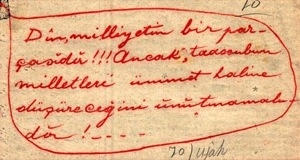 10
Din, milliyetin bir par-
çasıdır!!! Ancak, taassubun
milletleri ümmet haline
düşüreceğini unutmamalı-
dır!----
70